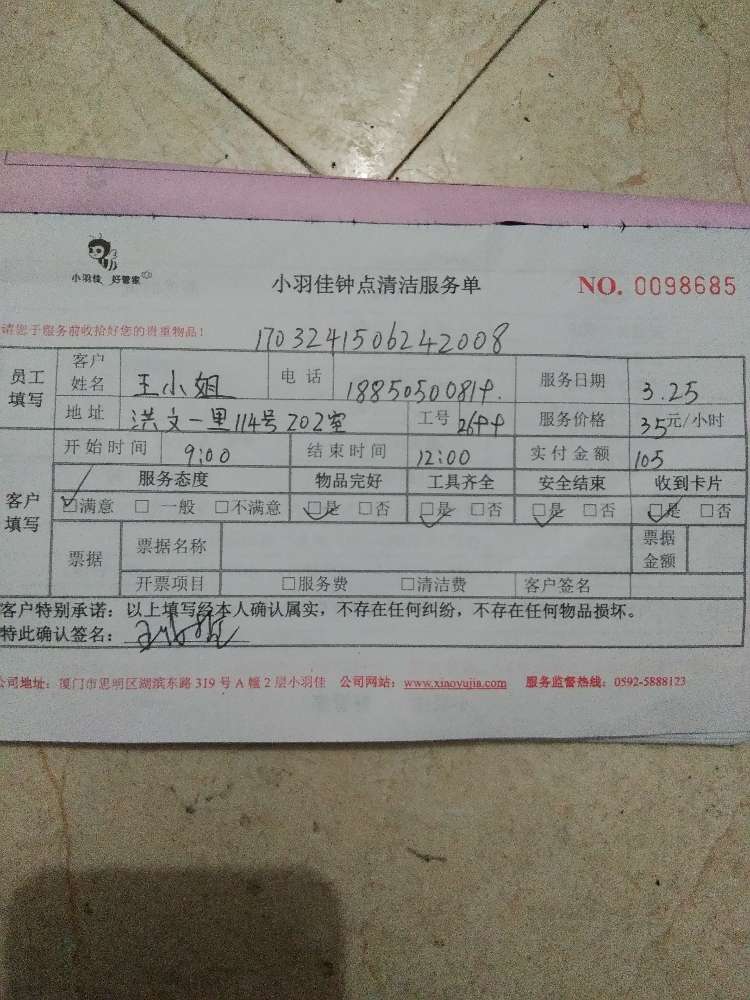 小羽佳 好管家
小羽佳钟点清洁服务单
NO. 0098685
请您于服务前收拾好您的贵重物品！
1703241506242008
员工填写 客户姓名 王小姐 电话 18850500814 服务日期 3.25
地址 洪文一里114号202室 工号 2644 服务价格 35元/小时
客户填写 开始时间 9:00 结束时间 12:00 实付金额 105
服务态度 物品完好 工具齐全 安全结束 收到卡片
☑满意 □一般 □不满意 ☑是 □否 ☑是 □否 ☑是 □否 ☑是 □否
票据 票据名称 票据金额
开票项目 □服务费 □清洁费 客户签名
客户特别承诺：以上填写经本人确认属实，不存在任何纠纷，不存在任何物品损坏。
特此确认签名：
公司地址：厦门市思明区湖滨东路 319 号 A 幢 2 层小羽佳 公司网站：www.xiaoyujia.com 服务监督热线：0592-5888123